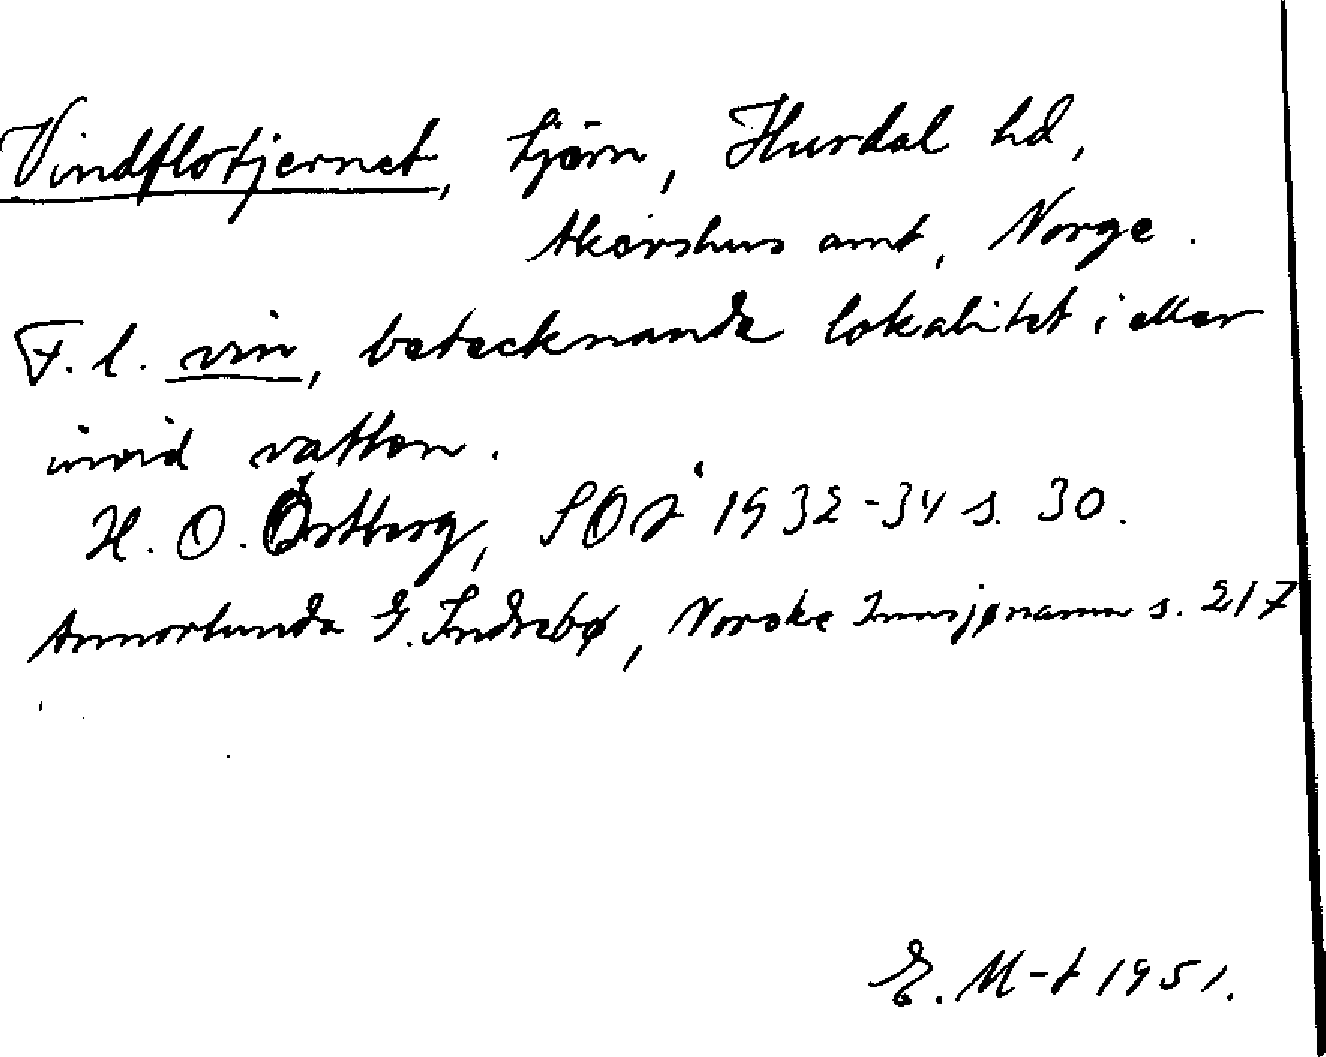 Vindflotjernet, tjärn, Hurdal hd,
Akershus amt, Norge.
F. l. vin, betecknande lokalitet i eller
invid vatten.
H. O. Östberg, SOÅ 1932-34 s. 30.
Annorlunda G. Indrebø, Norske Innsjønamn s. 217
E. M-t 1951.